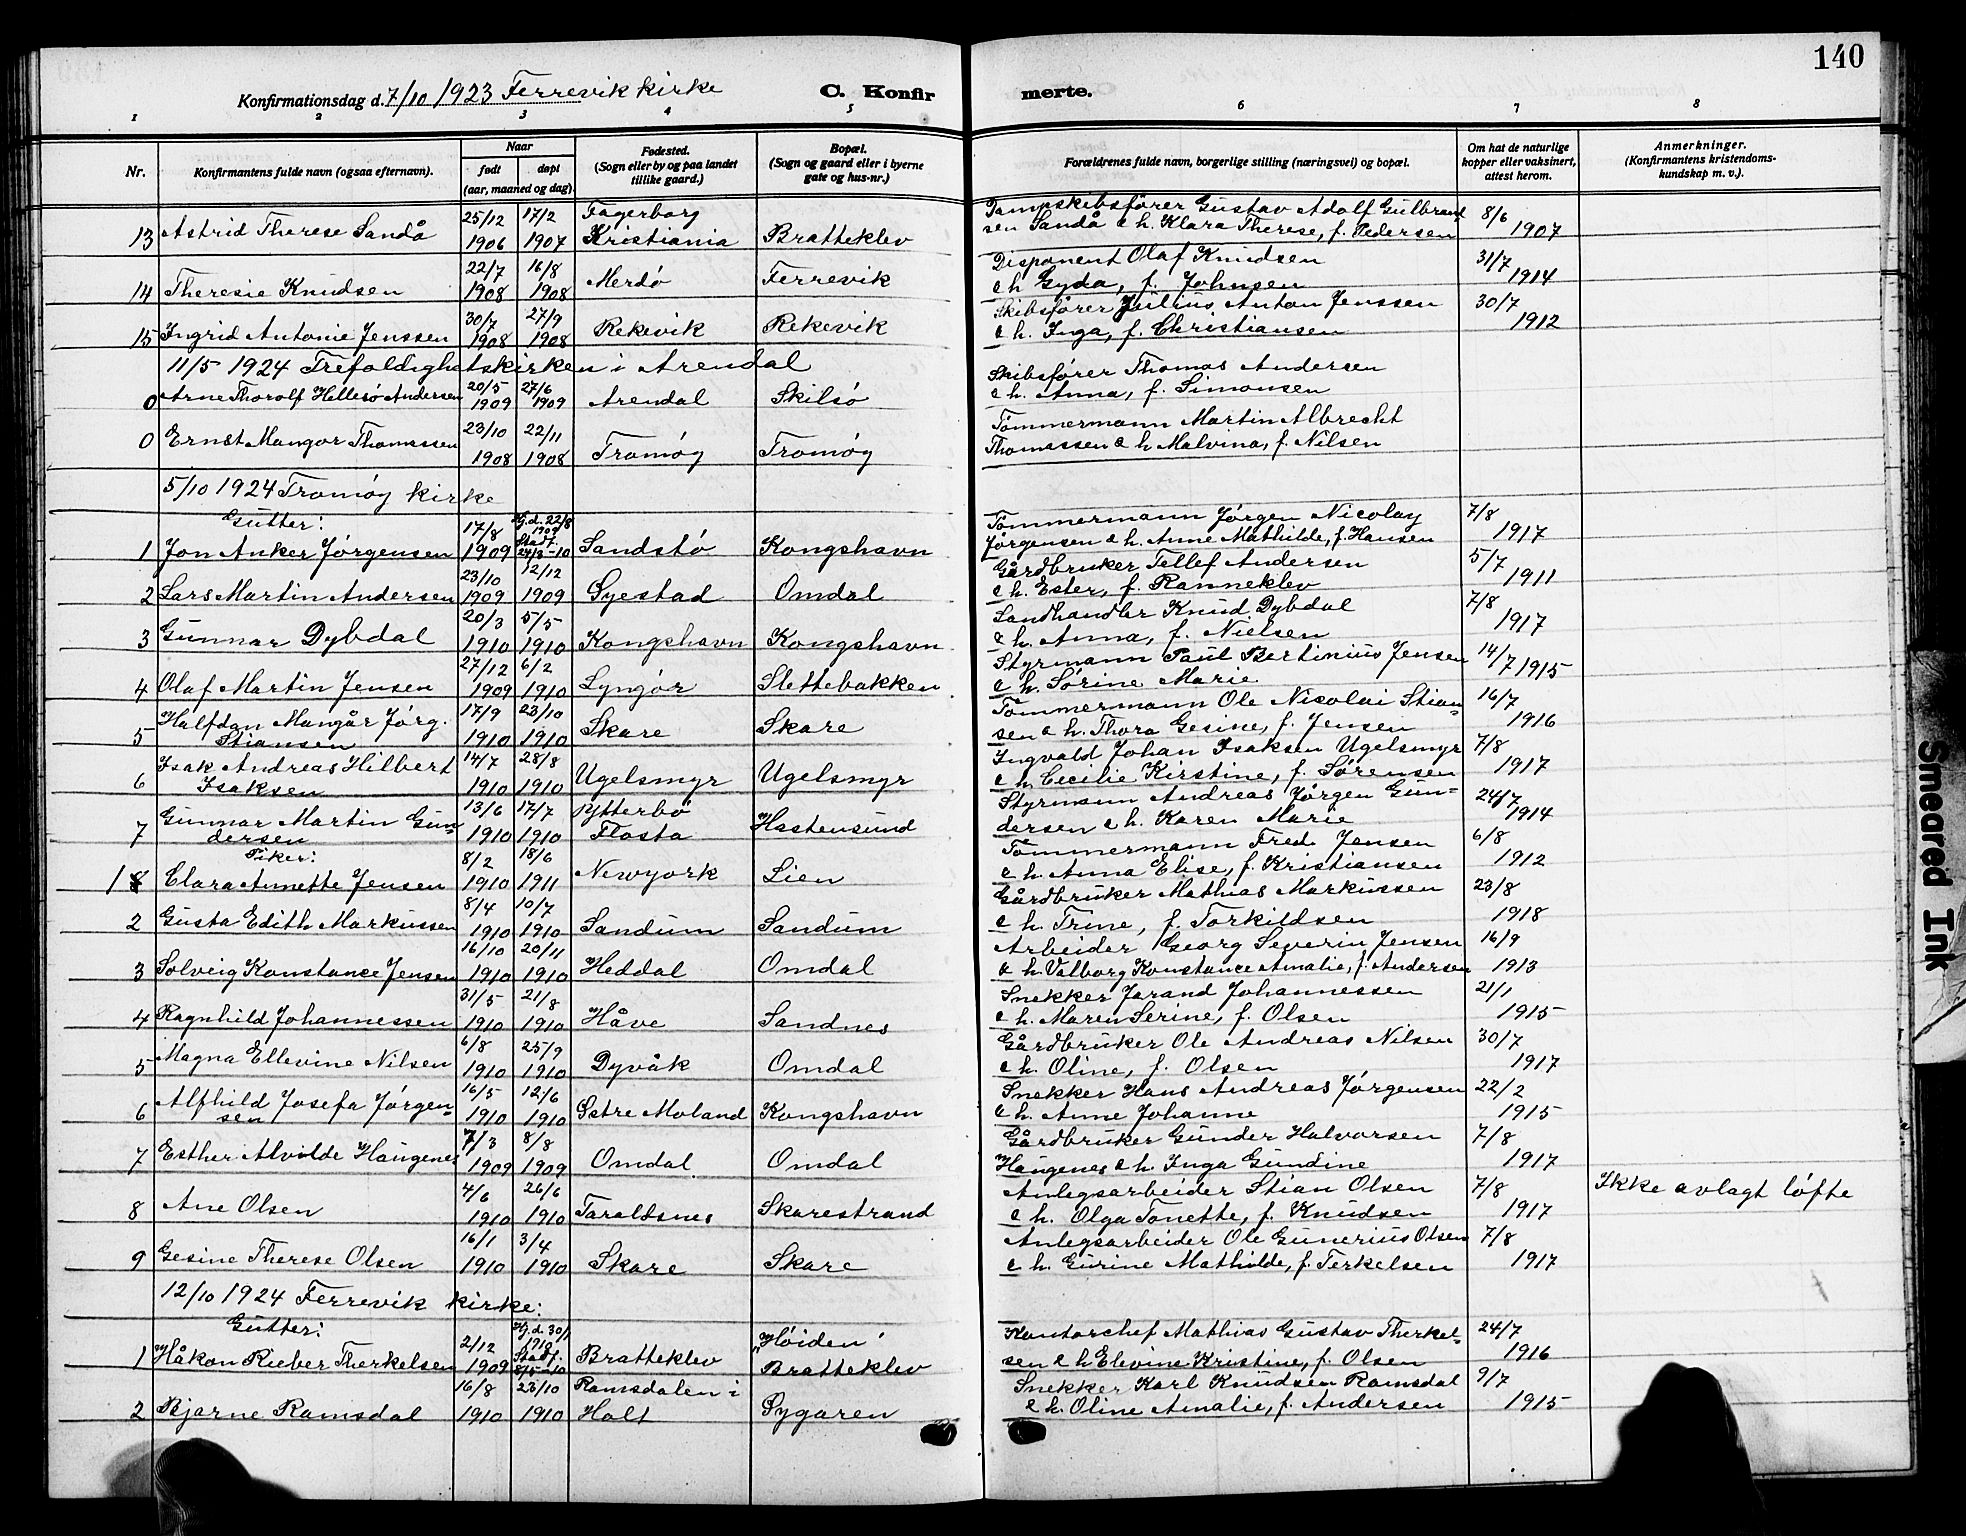 140
Konfirmationsdag d. 7/10 1923 Færrevik kirke
C. Konfirmerte.
1 2 3 4 5 6 7 8
Nr. Konfirmantens fulde navn (ogsaa efternavn). Naar født døpt (aar, maaned og dag) Fødested. (Sogn eller by og paa landet tillike gaard.) Bopæl. (Sogn og gaard eller i byerne gate og hus-nr.) Forældrenes fulde navn, borgerlige stilling (næringsvei) og bopæl. Om hat de naturlige kopper eller vaksinert, attest herom. Anmerkninger. (Konfirmantens kristendoms-kundskap m. v.).
13 Astrid Therese Sandå 25/12 1906 17/2 1907 Fagerborg Kristiania Bratteklev Dampskibsfører Gustav Adolf Gulbrandsen Sandå & h. Klara Therese, f. Pedersen 8/6 1907
14 Theresie Knudsen 22/7 1908 16/8 1908 Merdø Færrevik Disponent Olaf Knudsen & h. Gyda, f. Johnsen 31/7 1914
15 Ingrid Antonie Jenssen 30/7 1908 27/9 1908 Rekevik Rekevik Skibsfører Julius Anton Jenssen & h. Inga, f. Christiansen 30/7 1912
11/5 1924 Trefoldighetskirken i Arendal
0 Arne Thorolf Hillesø Andersen 20/5 1909 27/6 1909 Arendal Skilsø Skibsfører Thomas Andersen & h. Anna, f. Simonsen
0 Ernst Mangor Thomassen 23/10 1908 22/11 1908 Tromøy Tromøy Tømmermann Martin Albrecht Thomassen & h. Malvina, f. Nilsen
5/10 1924 Tromøy kirke
Gutter:
1 Jon Anker Jørgensen 17/8 1909 Hj.d. 22/8 1909 Stadf. 24/3-10 Sandstø Kongshavn Tømmermann Jørgen Nicolay Jørgensen & h. Anne Mathilde, f. Hansen 7/8 1917
2 Lars Martin Andersen 23/10 1909 12/12 1909 Gyestad Omdal Gårdbruker Tellef Andersen & h. Ester, f. Ranneklev 5/7 1911
3 Gunnar Dybdal 20/3 1910 5/5 1910 Kongshavn Kongshavn Landhandler Knud Dybdal & h. Anna, f. Nielsen 7/8 1917
4 Olaf Martin Jensen 27/12 1909 6/2 1910 Lyngør Slettebakken Styrmann Paul Bertinius Jensen & h. Sørine Marie 14/7 1915
5 Halfdan Mangår Jørg. Stiansen 17/9 1910 23/10 1910 Skare Skare Tømmermann Ole Nicolai Stiansen & h. Thora Gesine, f. Jensen 16/7 1916
6 Isak Andreas Hilbert Isaksen 14/7 1910 28/8 1910 Ugelsmyr Ugelsmyr Ingvald Johan Isaksen Ugelsmyr & h. Cecilie Kirstine, f. Sørensen 7/8 1917
7 Gunnar Martin Gundersen 13/6 1910 17/7 1910 Ytterbø Flosta Hastensund Styrmann Andreas Jørgen Gundersen & h. Karen Marie 24/7 1914
Piker:
1 Clara Annette Jensen 8/2 1910 18/6 1911 Newyork Lien Tømmermann Fred. Jensen & h. Anna Elise, f. Kristiansen 6/8 1912
2 Gusta Edith Markussen 8/4 1910 10/7 1910 Sandum Sandum Gårdbruker Mathias Markussen & h. Trine, f. Torkildsen 23/8 1918
3 Solveig Konstance Jensen 16/10 1910 20/11 1910 Heddal Omdal Arbeider Georg Severin Jensen & h. Valborg Konstance Amalie, f. Andersen 16/9 1913
4 Ragnhild Johannessen 31/5 1910 21/8 1910 Håve Sandnes Snekker Jørand Johannessen & h. Maren Serine, f. Olsen 21/1 1915
5 Magna Ellevine Nilsen 6/8 1910 25/9 1910 Dyvåk Omdal Gårdbruker Ole Andreas Nilsen & h. Oline, f. Olsen 30/7 1917
6 Alfhild Josefa Jørgensen 16/5 1910 12/6 1910 Østre Moland Kongshavn Snekker Hans Andreas Jørgensen & h. Anne Johanne 22/2 1915
7 Esther Alvilde Haugenes 7/3 1909 8/8 1909 Omdal Omdal Gårdbruker Gunder Halvorsen Haugenes & h. Inga Gundine 7/8 1917
8 Ane Olsen 4/6 1910 26/6 1910 Taraldsnes Skarestrand Anlegsarbeider Stian Olsen & h. Olga Tonette, f. Knudsen 7/8 1917 Ikke avlagt løfte
9 Gesine Therese Olsen 16/1 1910 3/4 1910 Skare Skare Anlegsarbeider Ole Gunerius Olsen & h. Gurine Mathilde, f. Terkelsen 7/8 1917
12/10 1924 Færrevik kirke:
Gutter:
1 Håkon Rieber Therkelsen 2/12 1909 Hj.d. 30/1 1910 Stadf. 8/5-10 Bratteklev "Høiden" Bratteklev Kontorchef Mathias Gustav Therkelsen & h. Elevine Kristine, f. Olsen 24/7 1916
2 Bjarne Ramsdal 16/8 1910 23/10 1910 Ramsdalen i Holt Pygaren Snekker Karl Knudsen Ramsdal & h. Oline Amalie, f. Andersen 9/7 1915
Smeared Ink